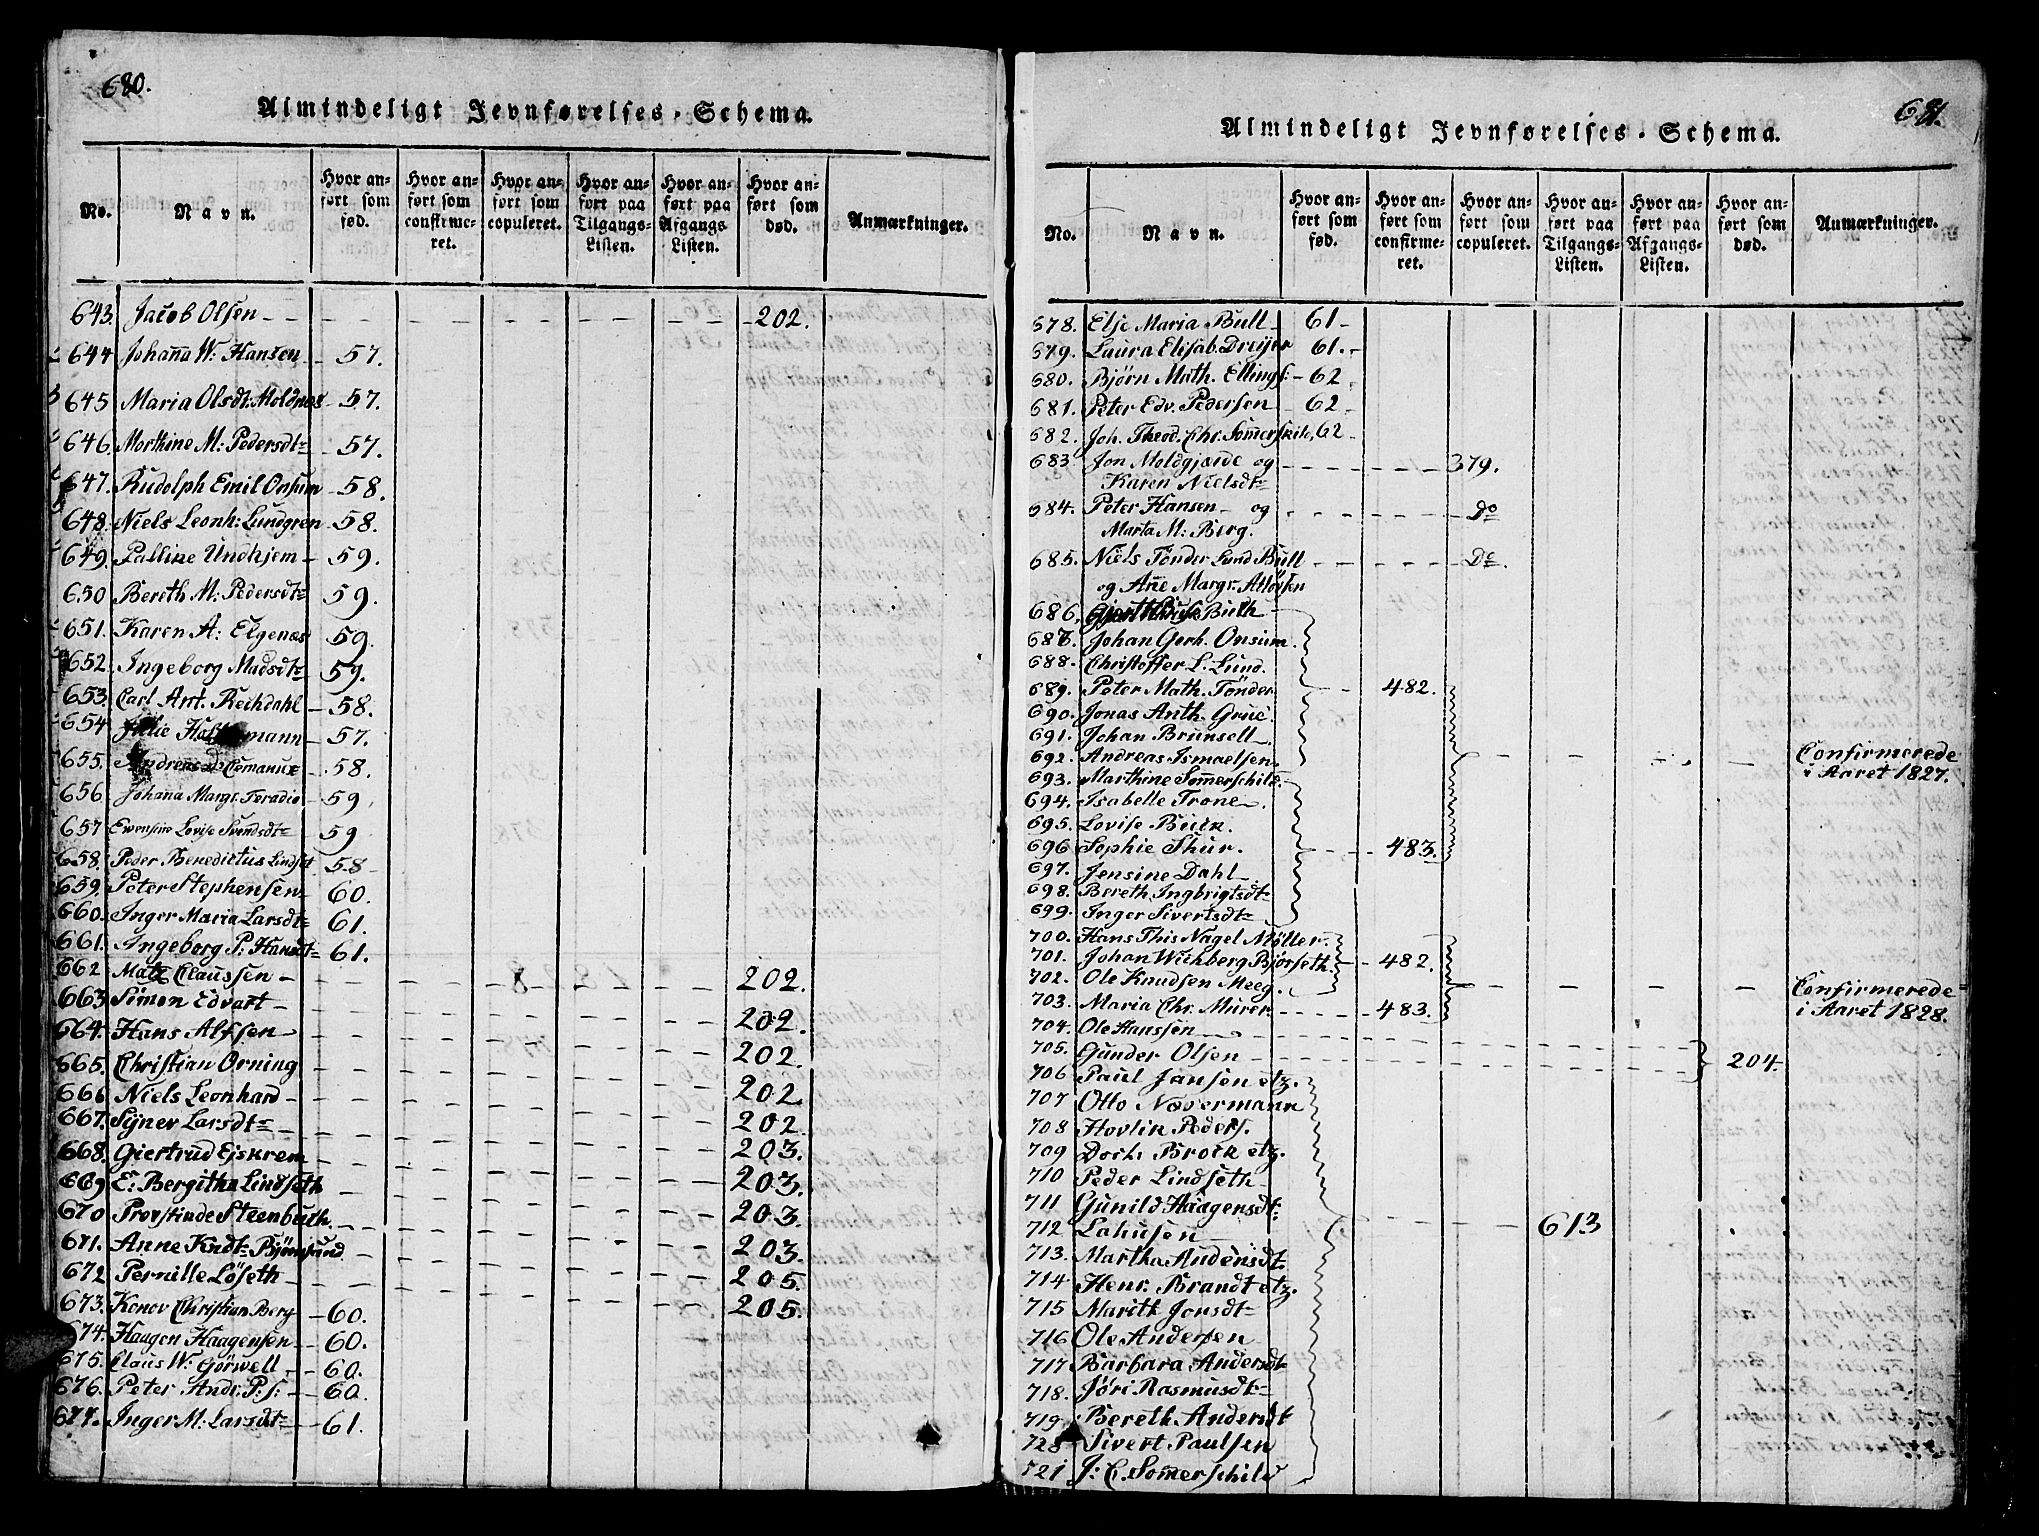 680.
Almindeligt Jevnførelses-Schema.
No.
Navn.
Hvor anført som fød.
Hvor anført som confirmeret.
Hvor anført som copuleret.
Hvor anført paa Tilgangs-Listen.
Hvor anført paa Afgangs Listen.
Hvor anført som død.
Anmærkninger.
643. Jacob Olsen 202.
644 Johanna W: Hansen 57.
645 Maria Olsdt: Moldnæs 57.
646. Marthine M: Pedersdt 57.
647. Rudolph Emil Onsum 58.
648. Niels Leonh: Lundgren 58.
649. Palline Undhjem 59.
650 Bereth M: Pedersdt 59.
651. Karen A: Elgenæs 59.
652. Ingeborg Madsdt 59.
653. Carl Ant. Reihdahl 58.
654 Julie mann 57.
655. Andreas 58.
656 Johanna Margr. 59.
657 Lovise Svendsdt 59
658. Peder Benedictus Lindset 58
659. Peter Stephensen 60.
660. Inger Maria Larsdt 61.
661. Ingeborg P: Hansdt 61.
662 Matz Claussen 202.
663 Simon Edvart 202.
664. Hans Alfsen 202.
665. Christian Orning 202.
666 Niels Leonhard 202.
667. Syner Larsdt 203.
668. Giertrud Ejskrem 203.
669 E: Bergitha Lindseth 203.
670 Provstinde Steenbuch 203.
671. Anne Kndt: Bjørnsund 205.
672 Pernille Løseth 205.
673. Konov Christian Berg 60.
674. Haagen Haagensen 60.
675. Claus W: Görwell 60.
676. Peter Andr. P:s: 60.
677. Inger M: Larsdt 61.
681.
Almindeligt Jevnførelses-Schema.
No.
Navn.
Hvor anført som fød.
Hvor anført som confirmeret.
Hvor anført som copuleret.
Hvor anført paa Tilgangs-Listen.
Hvor anført paa Afgangs-Listen.
Hvor anført som død.
Anmærkninger.
678. Else Maria Bull 61
679. Laura Elisab. Dreyer 61.
680. Bjørn Math. Ellings: 62
681. Peter Edv. Pedersen 62
682. Joh. Theod. Chr. Somerskild, 62
683 Jon Moldgjærde og 379.
Karen Nielsdt
684. Peter Hansen og Do
Marta M: Berg.
685. Niels Tönder Lund Bull Do.
og Ane Margr.
686. Buch
687. Johan Gerh. Onsum.
688. Christoffer L. Lund.
689. Peter Math. Tönder 482.
690. Jonas Anth. Grue.
691. Johan Brunsell
692. Andreas Ismaelsen Confirmerede
i Aaret 1827.
693. Marthine Somerschild
694. Isabelle Trone
695. Lovise Buck.
696 Sophie Thur. 483.
697. Jensine Dahl
698. Bereth Ingbrigtsdt
699. Inger Sivertsdt
700. Hans This Nagel Møller.
701. Johan Wichberg Bjørseth 482.
702. Ole Knudsen Meeg. Confirmerede
i Aaret 1828.
703. Maria Chr. Mürer 483.
704. Ole Hanssen
705. Gunder Olsen 204
706 Paul Jansen etz.
707 Otto Nævermann
708 Hovlin Peders.
709 Doch: Brock etz.
710 Peder Lindseth
711 Gunild Haagensdt
712 Lahusen 613
713. Martha Andersdt
714 Henr. Brandt etz.
715 Marith Jonsdt
716 Ole Andersen
717 Barbara Andersdt
718. Jöri Rasmusdt
719 Bereth Andersdt
728 Sivert Paulsen
521 J: C. Somerschild